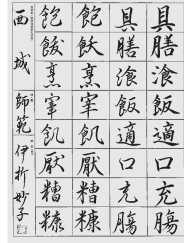 具膳飡飯適口充腸
具膳飡飯適口充腸
飽飫烹宰飢厭糟糠
飽飫烹宰飢厭糟糠
西城 師範 伊折妙子